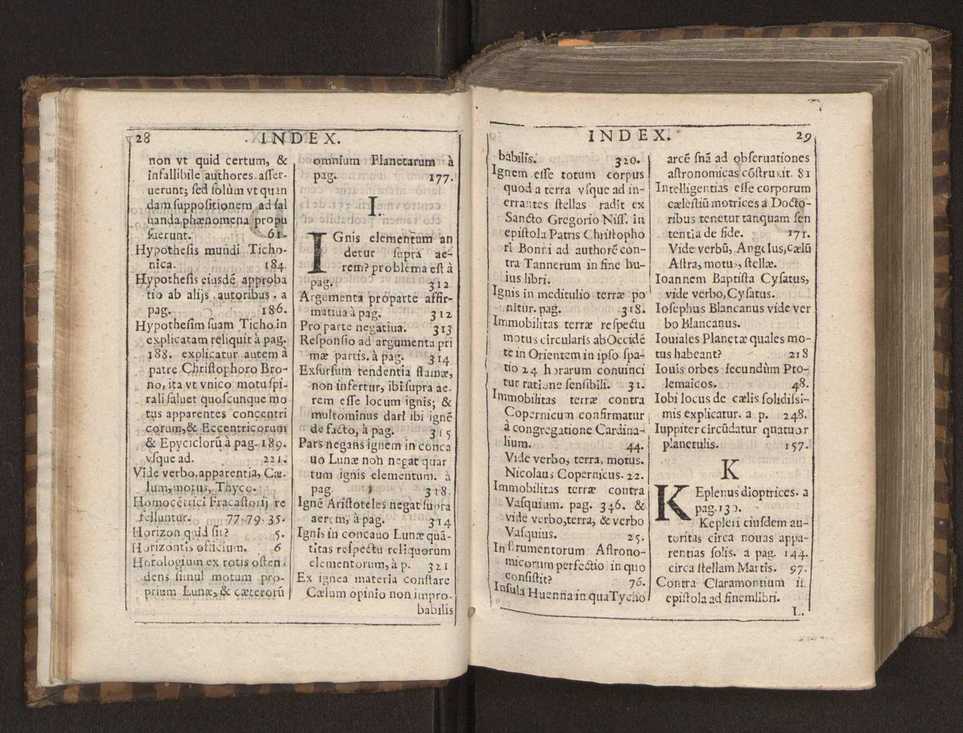 28 INDEX.
non vt quid certum, &
infallibile authores asser-
uerunt; sed solùm vt quan
dam suppositionem ad sal
uanda phænomena propu
suerunt. 61.
Hypothesis mundi Ticho-
nica. 184
Hypothesis eiusdē approba
tio ab alijs autoribus. a
pag. 186.
Hypothesim suam Ticho in
explicatam reliquit à pag.
188. explicatur autem à
patre Christophoro Bro-
no, ita vt vnico motu spi-
rali saluet quoscunque mo
tus apparentes concentri
corum, & Eccentricorum
& Epyciclorū à pag. 189.
vsque ad. 221.
Vide verbo, apparentia, Cæ-
lum, motus, Thyco.
Homocētrici Fracastorij re
felluntur. 77. 79. 35.
Horizon quid sit? 5.
Horizontis officium. 6
Horologium ex rotis osten
dens simul motum pro-
prium Lunæ, & cæterorū
omnium Planetarum à
pag. 177.
I.
IGnis elementum an
detur supra ae-
rem? problema est à
pag. 312
Argumenta pro parte affir-
matiua à pag. 312
Pro parte negatiua. 313
Responsio ad argumenta pri
mæ partis. à pag. 314
Exsursum tendentia flamæ,
non infertur, ibi supra ae.
rem esse locum ignis; &
multominus dari ibi ignē
de facto, à pag. 315
Pars negans ignem in conca
uo Lunæ non negat quar
tum ignis elementum. à
pag. 318.
Ignē Aristoteles negat supra
aerem, à pag. 314
Ignis in concauo Lunæ quā-
titas respectu reliquorum
elementorum, à p. 321
Ex ignea materia constare
Cælum opinio non impro-
babilis
INDEX. 29
babilis. 320.
Ignem esse totum corpus
quod a terra vsque ad in-
errantes stellas radit ex
Sancto Gregorio Niss. in
epistola Patris Christopho
ri Bonri ad authorē con-
tra Tannerum in fine hu-
ius libri.
Ignis in meditulio terræ po
nitur. pag. 318.
Immobilitas terræ respectu
motus circularis ab Occidē
te in Orientem in ipso spa-
tio 24 horarum conuinci
tur ratione sensibili. 31.
Immobilitas terræ contra
Copernicum confirmatur
à congregatione Cardina-
lium. 44.
Vide verbo, terra, motus.
Nicolaus Copernicus. 22.
Immobilitas terræ contra
Vasquium. pag. 346. &
vide verbo, terra, & verbo
Vasquius. 25.
Instrumentorum Astrono-
micorum perfectio in quo
consistit? 76.
Insula Huenna in qua Tycho
arcē suā ad obseruationes
astronomicas cōstruxit. 81
Intelligentias esse corporum
cælestiū motrices a Docto-
ribus tenetur tanquam sen
tentia de fide. 171.
Vide verbū, Angelus, cælū
Astra, motus, stellæ.
Ioannem Baptista Cysatus,
vide verbo, Cysatus.
Iosephus Blancanus vide ver
bo Blancanus.
Iouiales Planetæ quales mo-
tus habeant? 218
Iouis orbes secundùm Pto-
lemaicos. 48.
Iobi locus de cælis solidissi-
mis explicatur. a p. 248.
Iuppiter circūdatur quatuor
planetulis. 157.
K
KEplerus dioptrices. a
pag. 130.
Kepleri eiusdem au-
toritas circa nouas appa-
rentias solis. a pag. 144.
circa stellam Martis. 97.
Contra Claramontium in
epistola ad finem libri.
L.